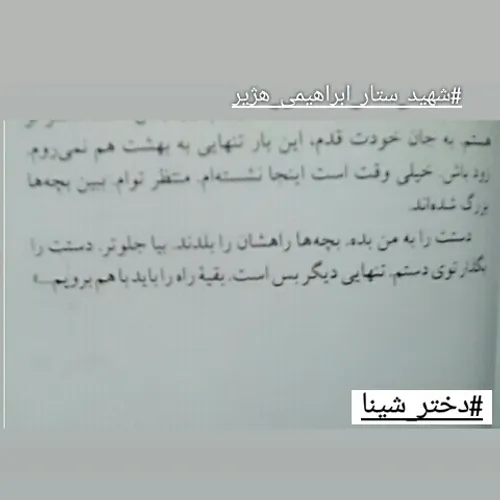 #شهید_ستار_ابراهیمی_هژیر
هستم. به جان خودت قدم، این بار تنهایی به بهشت هم نمی‌روم.
زود باش. خیلی وقت است اینجا نشسته‌ام. منتظر توام. ببین بچه‌ها
بزرگ شده‌اند.
دستت را به من بده. بچه‌ها راهشان را بلدند. بیا جلوتر. دستت را
بگذار توی دستم. تنهایی دیگر بس است. بقیهٔ راه را باید با هم برویم...»
#دختر_شینا